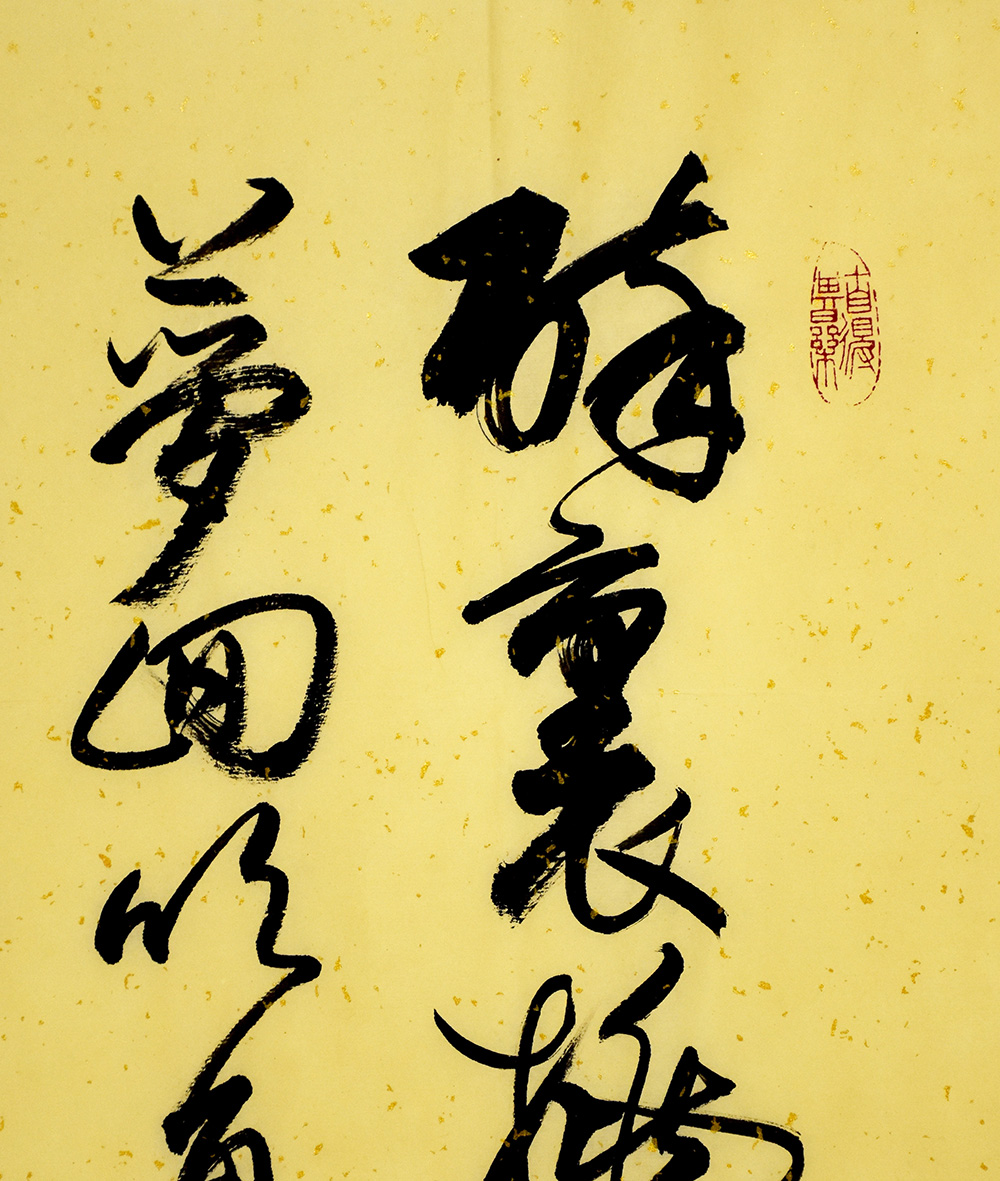 醉裏挑
夢回吹角